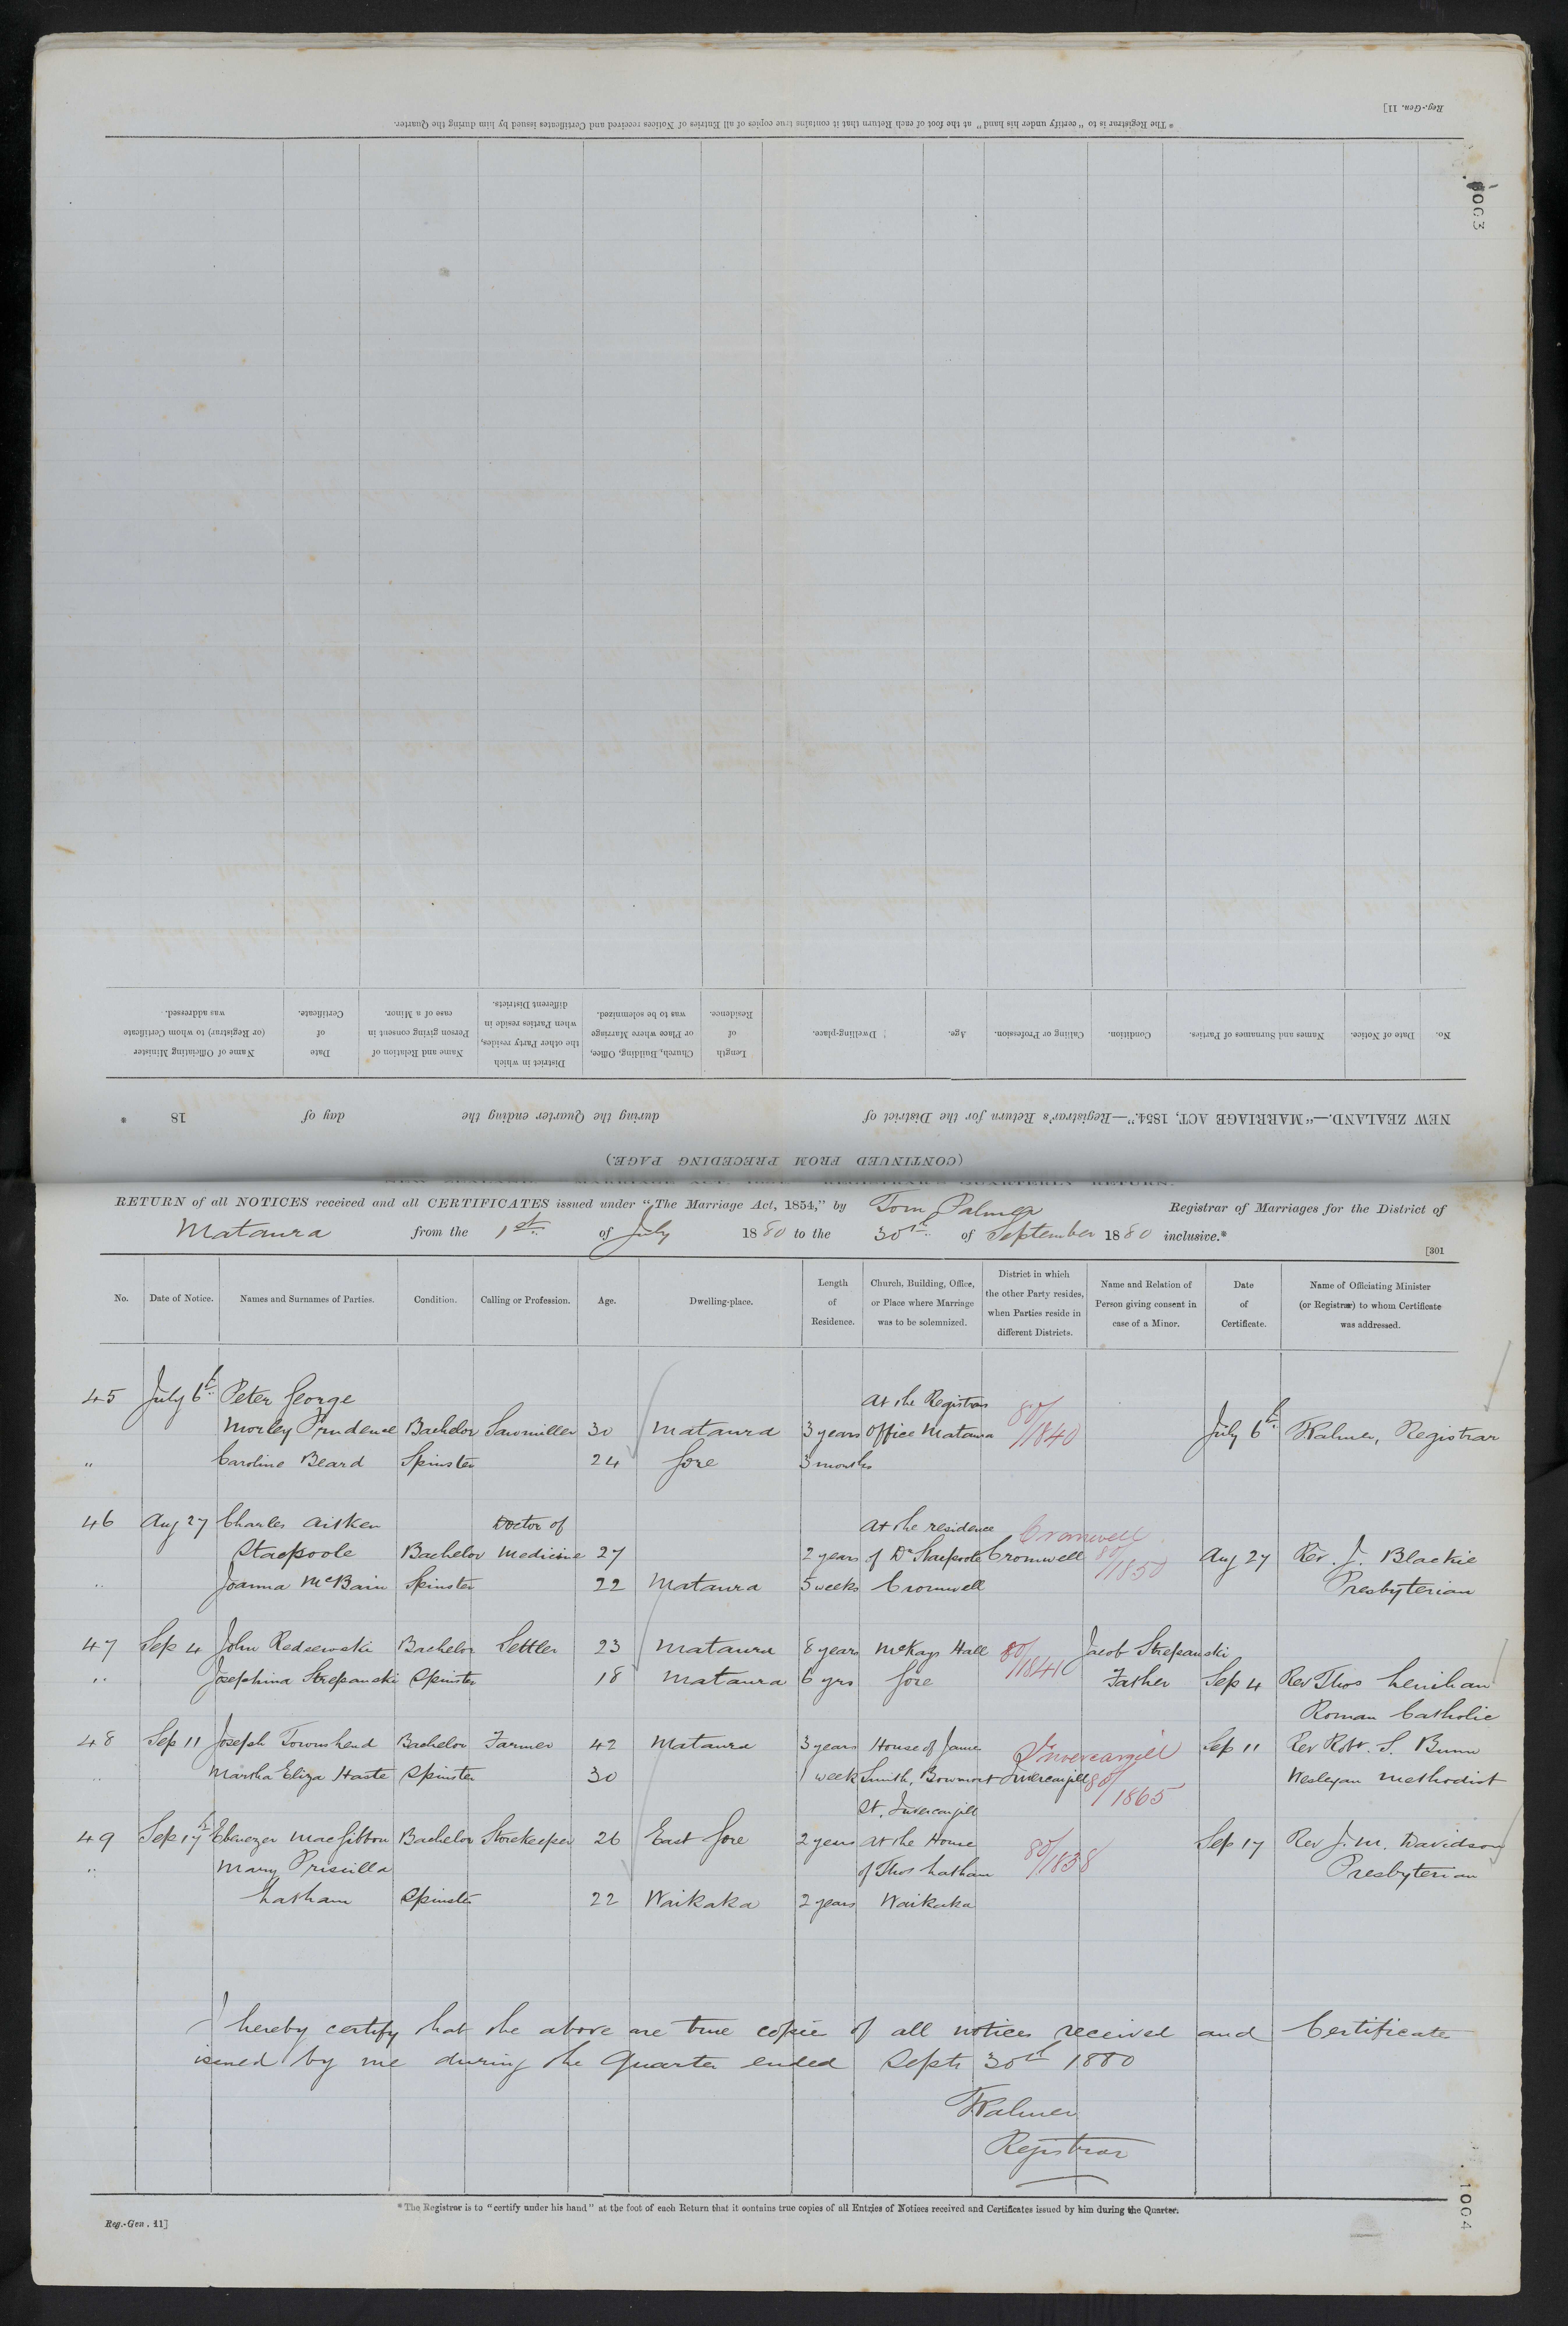 Reg.-Gen. 11]
* The Registrar is to "certify under his hand" at the foot of each Return that it contains true copies of all Entries of Notices received and Certificates issued by him during the Quarter.
1003
No. Date of Notice. Names and Surnames of Parties. Condition. Calling or Profession. Age. Dwelling-place. Length of Residence. Church, Building, Office, or Place where Marriage was to be solemnized. District in which the other Party resides, when Parties reside in different Districts. Name and Relation of Person giving consent in case of a Minor. Date of Certificate. Name of Officiating Minister (or Registrar) to whom Certificate was addressed.
NEW ZEALAND.—"MARRIAGE ACT, 1854."—Registrar's Return for the District of during the Quarter ending the day of 18 *
(CONTINUED FROM PRECEDING PAGE.)
RETURN of all NOTICES received and all CERTIFICATES issued under "The Marriage Act, 1854," by Tom Palmer Registrar of Marriages for the District of
Mataura from the 1st of July 1880 to the 30th of September 1880 inclusive.*
[301
No. Date of Notice. Names and Surnames of Parties. Condition. Calling or Profession. Age. Dwelling-place. Length of Residence. Church, Building, Office, or Place where Marriage was to be solemnized. District in which the other Party resides, when Parties reside in different Districts. Name and Relation of Person giving consent in case of a Minor. Date of Certificate. Name of Officiating Minister (or Registrar) to whom Certificate was addressed.
45 July 6th Peter George At the Registrars
Morley Prudence Bachelor Sawmiller 30 Mataura 3 years Office Mataura 80/1840 July 6th TPalmer, Registrar
" Caroline Beard Spinster 24 Gore 3 months
46 Aug 27 Charles Aitken Doctor of At the residence Cromwell
Stacpoole Bachelor Medicine 27 2 years of Dr Stacpoole Cromwell 80/1850 Aug 27 Rev. J. Blackie
" Joanna McBain Spinster 22 Mataura 5 weeks Cromwell Presbyterian
47 Sep 4 John Redseewski Bachelor Settler 23 Mataura 8 years McKays Hall 80/1841 Jacob Strepanski
" Josephina Strepanski Spinster 18 Mataura 6 yrs Gore Father Sep 4 Rev Thos Lenihan
Roman Catholic
48 Sep 11 Joseph Townshend Bachelor Farmer 42 Mataura 3 years House of James Invercargill Sep 11 Rev Robt. S. Bunn
" Martha Eliza Haste Spinster 30 1 week Smith, Bowmont Invercargill 80/1865 Wesleyan Methodist
St. Invercargill
49 Sep 17th Ebenezer MacGibbon Bachelor Storekeeper 26 East Gore 2 years At the House 80/1838 Sep 17 Rev J. M. Davidson
" Mary Priscilla of Thos Latham Presbyterian
Latham Spinster 22 Waikaka 2 years Waikaka
I hereby certify that the above are true copies of all notices received and Certificates
issued by me during the Quarter ended Septr 30th 1880
TPalmer
Registrar
* The Registrar is to "certify under his hand" at the foot of each Return that it contains true copies of all Entries of Notices received and Certificates issued by him during the Quarter.
Reg.-Gen. 11]
1004